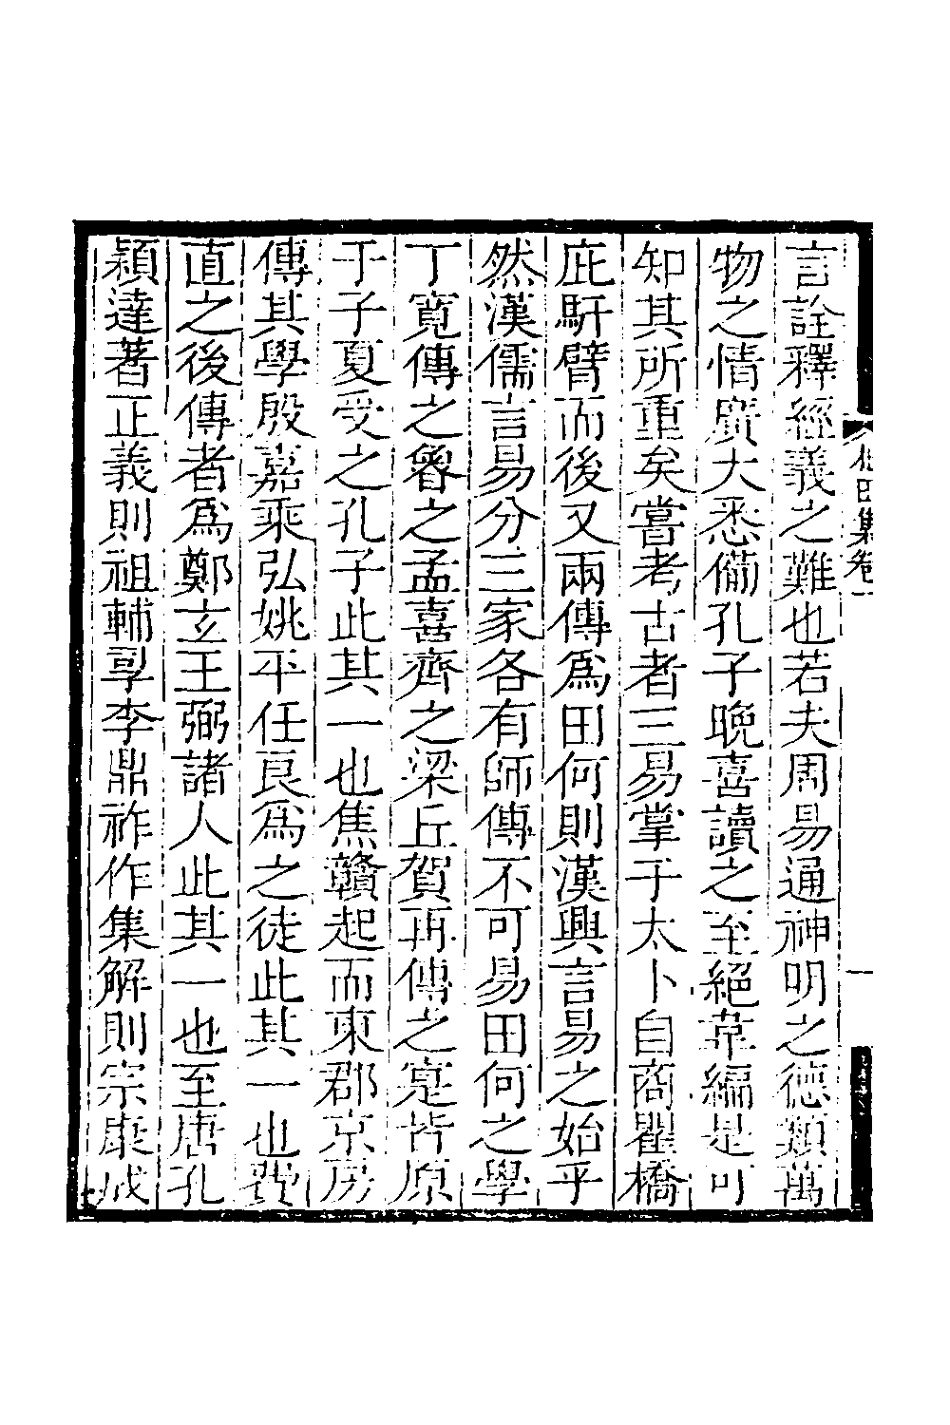 言詮釋經義之難也若夫周易通神明之德類萬
物之情廣大悉備孔子晚喜讀之至絕韋編是可
知其所重矣嘗考古者三易掌于太卜自商瞿橋
庇馯臂而後又兩傳爲田何則漢興言易之始乎
然漢儒言易分三家各有師傳不可易田何之學
丁寬傳之魯之孟喜齊之梁丘賀再傳之寔皆原
于子夏受之孔子此其一也焦贛起而東郡京房
傳其學殷嘉乘弘姚平任良爲之徒此其一也費
直之後傳者爲鄭玄王弼諸人此其一也至唐孔
穎達著正義則祖輔嗣李鼎祚作集解則宗康成